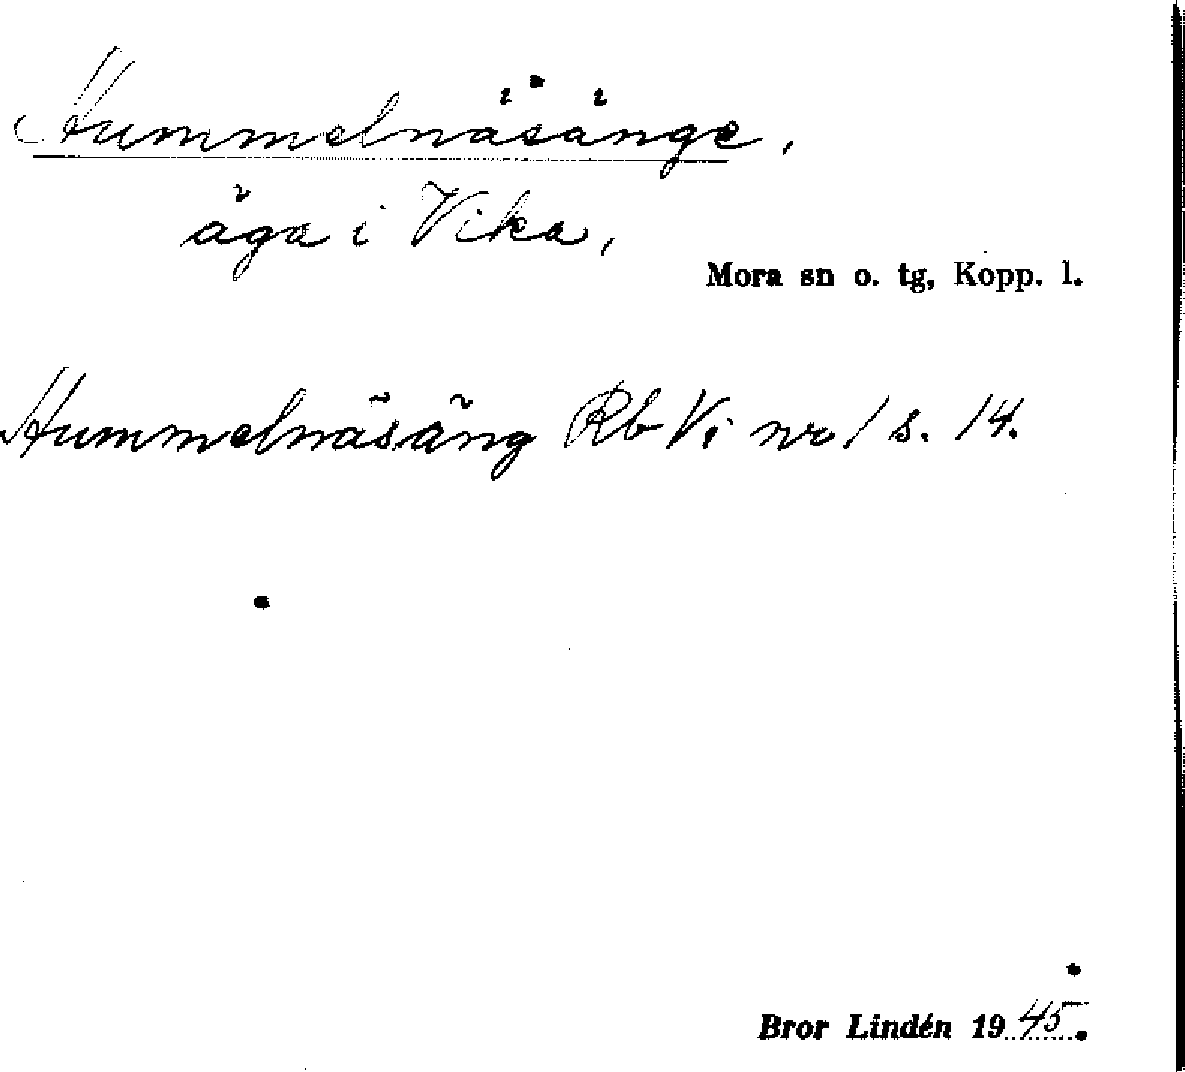 Hummelnäsänge,
äga i Vika,
Mora sn o. tg, Kopp. l.
Hummelnäsäng Rb Vi nr 1 s. 14.
Bror Lindén 1945.